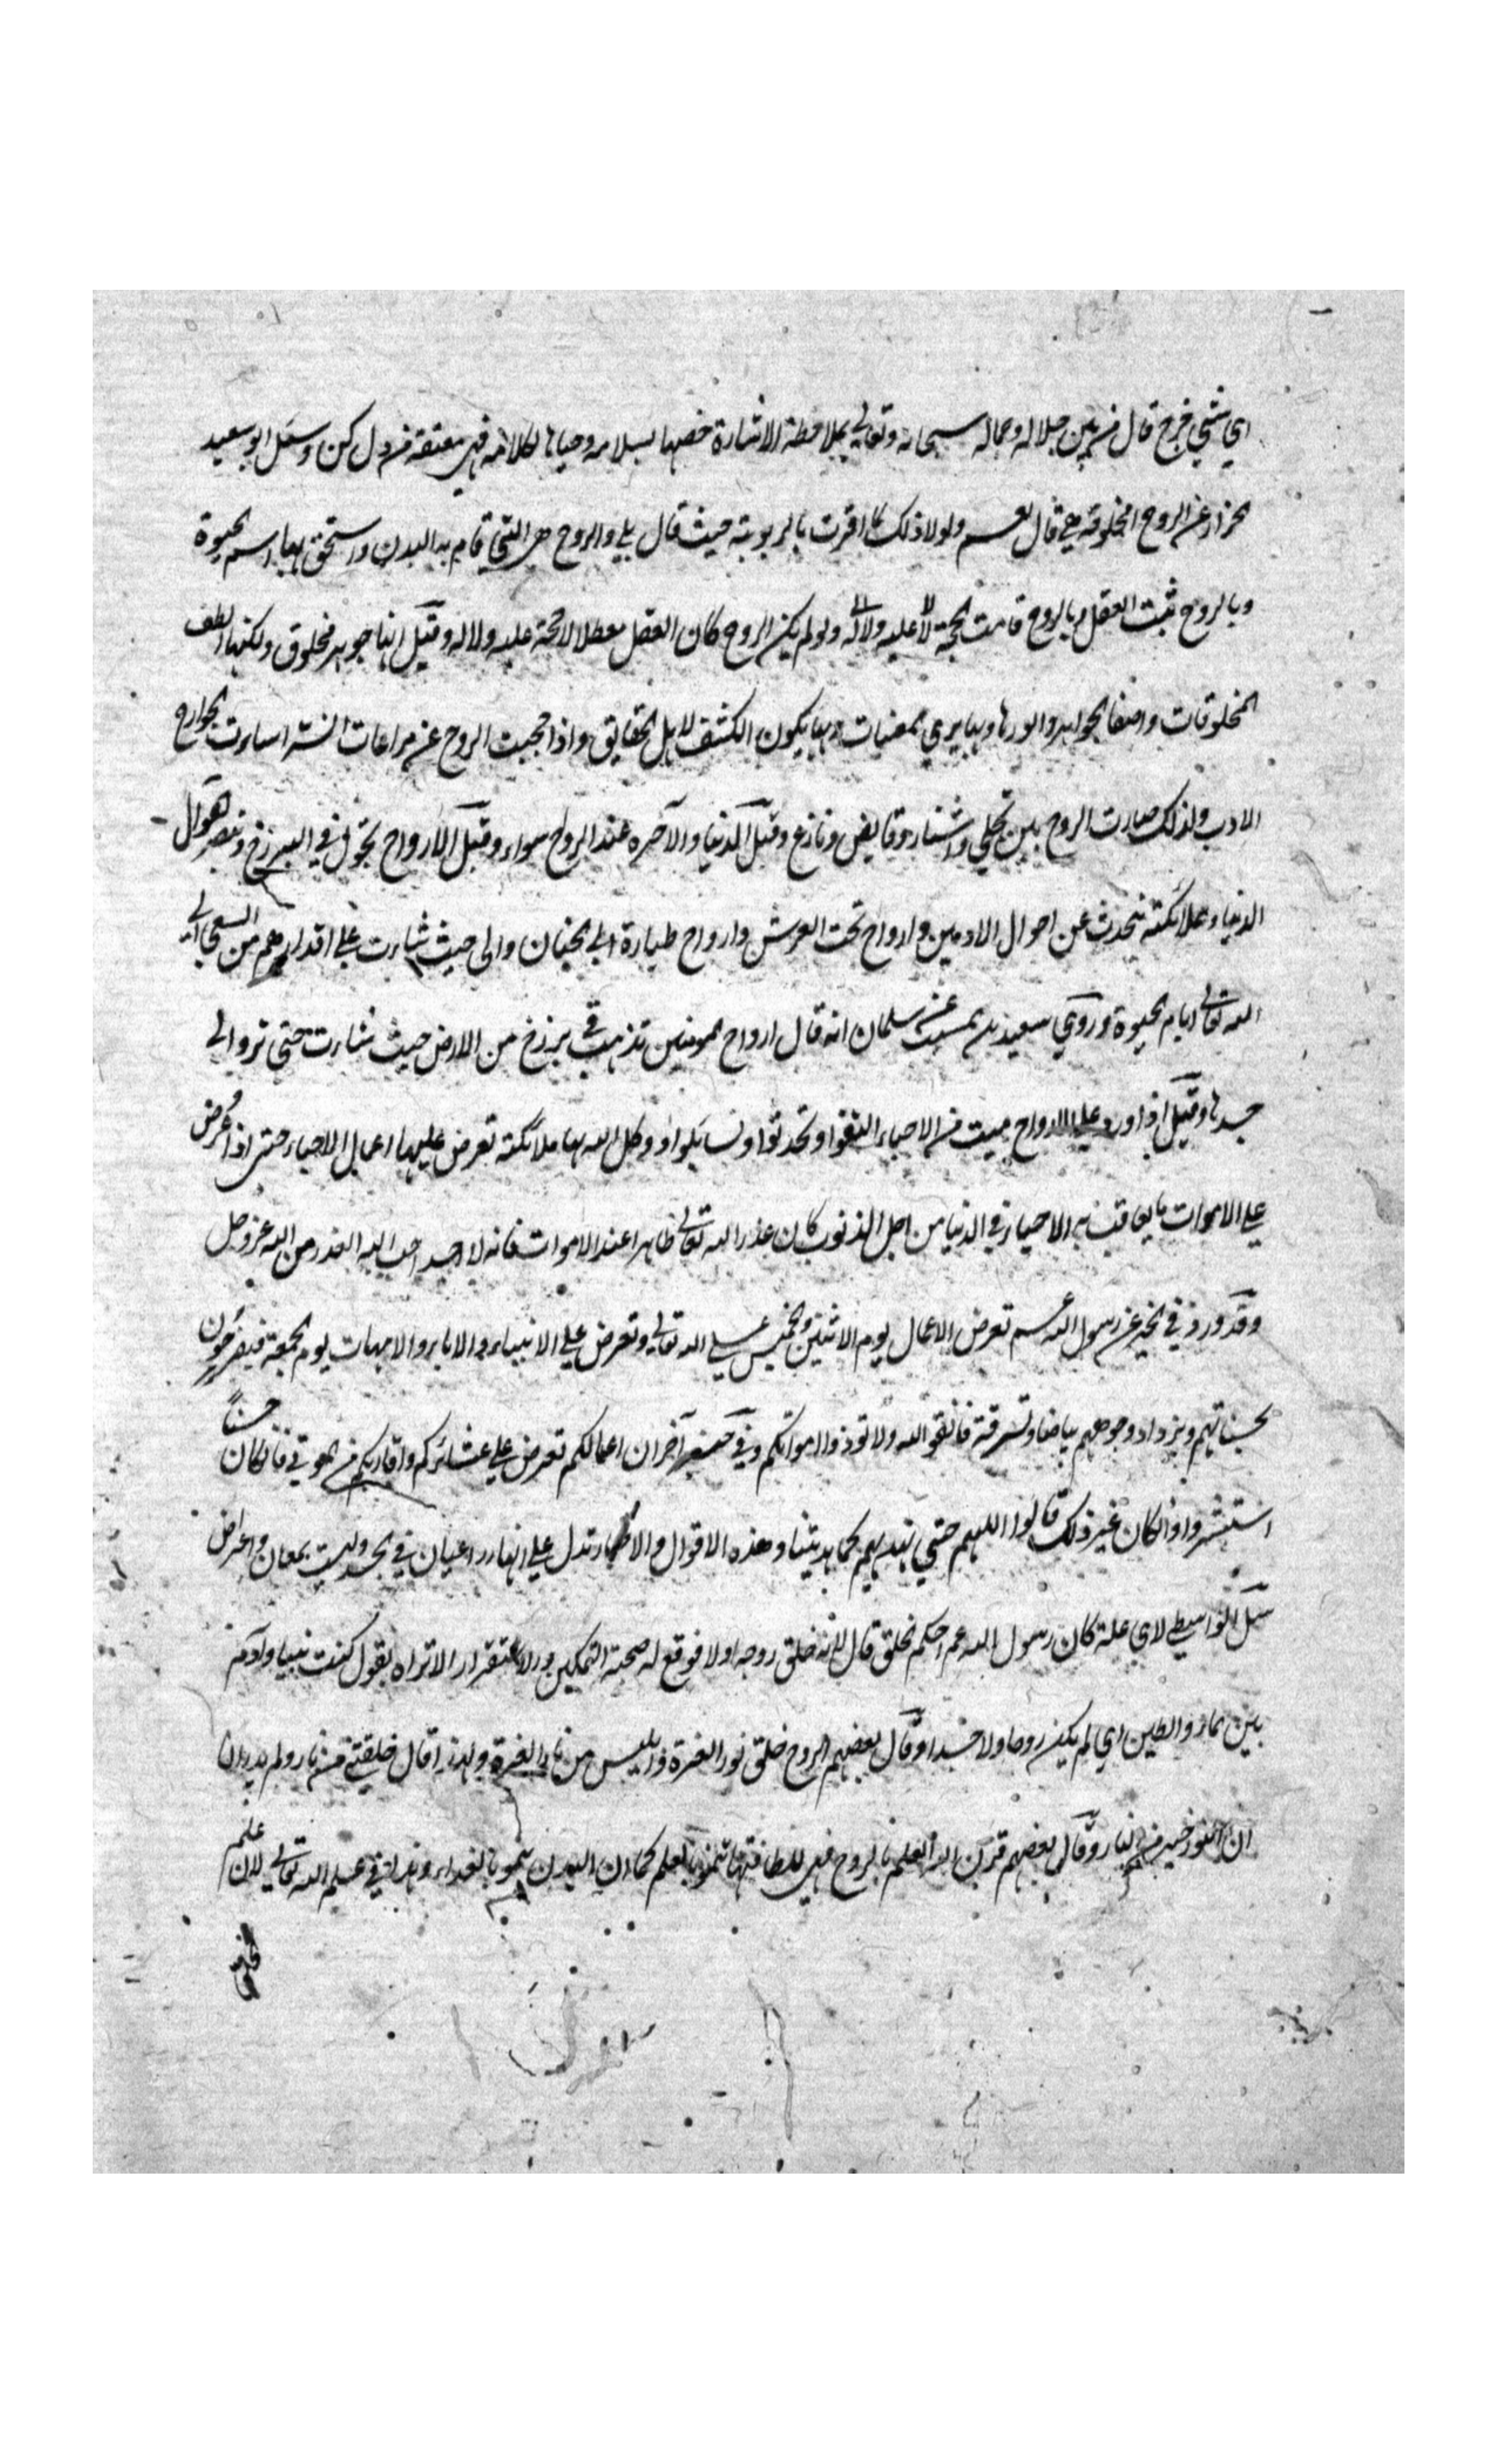 اي شئي خرج قال من بين جلاله وجماله سبحانه وتعالي بملاحظة الاشارة خصها بسلامه وحياها بكلامه فهي معتقة من ذل كن وسئل ابو سعيد
الخزاز عن الروح امخلوقة هي قال نعم ولولا ذلك لما اقرت بالربوبية حيث قال بلي والروح هي التي قام به البدن واستحق بها اسم الحيوة
وبالروح ثبت العقل وبالروح قامت الحجة ولو لم يكن الروح كان العقل معطلا لا حجة عليه ولا له وقيل انها جوهر مخلوق ولكنها الطف
المخلوقات واصفا الجواهر وانورها وبها يري المغيبات وبها يكون الكشف لاهل الحقايق واذا حجبت الروح عن مراعات السر اساءت الجوارح
الادب ولذلك صارت الروح بين تجلي واستتار وقابض ونازع وقيل الدنيا والآخره عند الارواح سواء وقيل الارواح تجول في البرزخ وتبصر اهوال
الدنيا وملائكته يتحدث عن احوال الادميين وارواح تحت العرش وارواح طيارة الي الجنان والى حيث شاءت علي اقدارهم من السعي الي
الله تعالي ايام الحيوة وروي سعيد بن المسيب عن سلمان انه قال ارواح المومنين تذهب في برزخ من الارض حيث شاءت حتى تردالي
جسدها وقيل اذا ورد علي الارواح ميت من الاحياء التقوا وتحدثوا وتسايلوا ووكل الله بها ملائكته تعرض عليها اعمال الاحياء حتى اذا عرض
علي الاموات ما يعاقب به الاحياء في الدنيا من اجل الذنوب كان عذر الله تعالي ظاهرا عند الاموات فانه لا احد احب اليه العذر من الله عز وجل
وقد ورد في الخبر عن رسول الله تعرض الاعمال يوم الاثنين والخميس علي الله تعالي وتعرض علي الانبياء والابا والامهات يوم الجمعة فيفرحون
بحسناتهم ويزداد وجوههم بياضا وتشرقة فاتقوالله ولا توذوا امواتكم وفي خبر آخر ان اعمالكم تعرض علي عشائركم واقاربكم من الموتي فان كان حسنا
استبشروا وانكان غير ذلك قالوا اللهم حتي تهديهم كما هديتنا وهذه الاقوال والاخبار تدل علي انها اعيان في الجسد وليست بمعان واعراض
سئل الواسطي لاي علة كان رسول الله احكم الخلق قال لانه خلق روحه اولا فوقع له صحبة التمكين والاستقرار الا تراه يقول كنت نبيا وآدم
بين الماء والطين اي لم يكن روحا ولا جسدا وقال بعضهم الروح خلق نور العزة وابليس من نار العزة ولهذا قال خلقتني من نار ولم يدر ان
ان النور خير من النار وقال بعضهم قرن الله العلم بالروح فهي للطافتها تنمو بالعلم كما ان البدن ينمو بالغذاء وهذا في علم الله تعالي لان علم